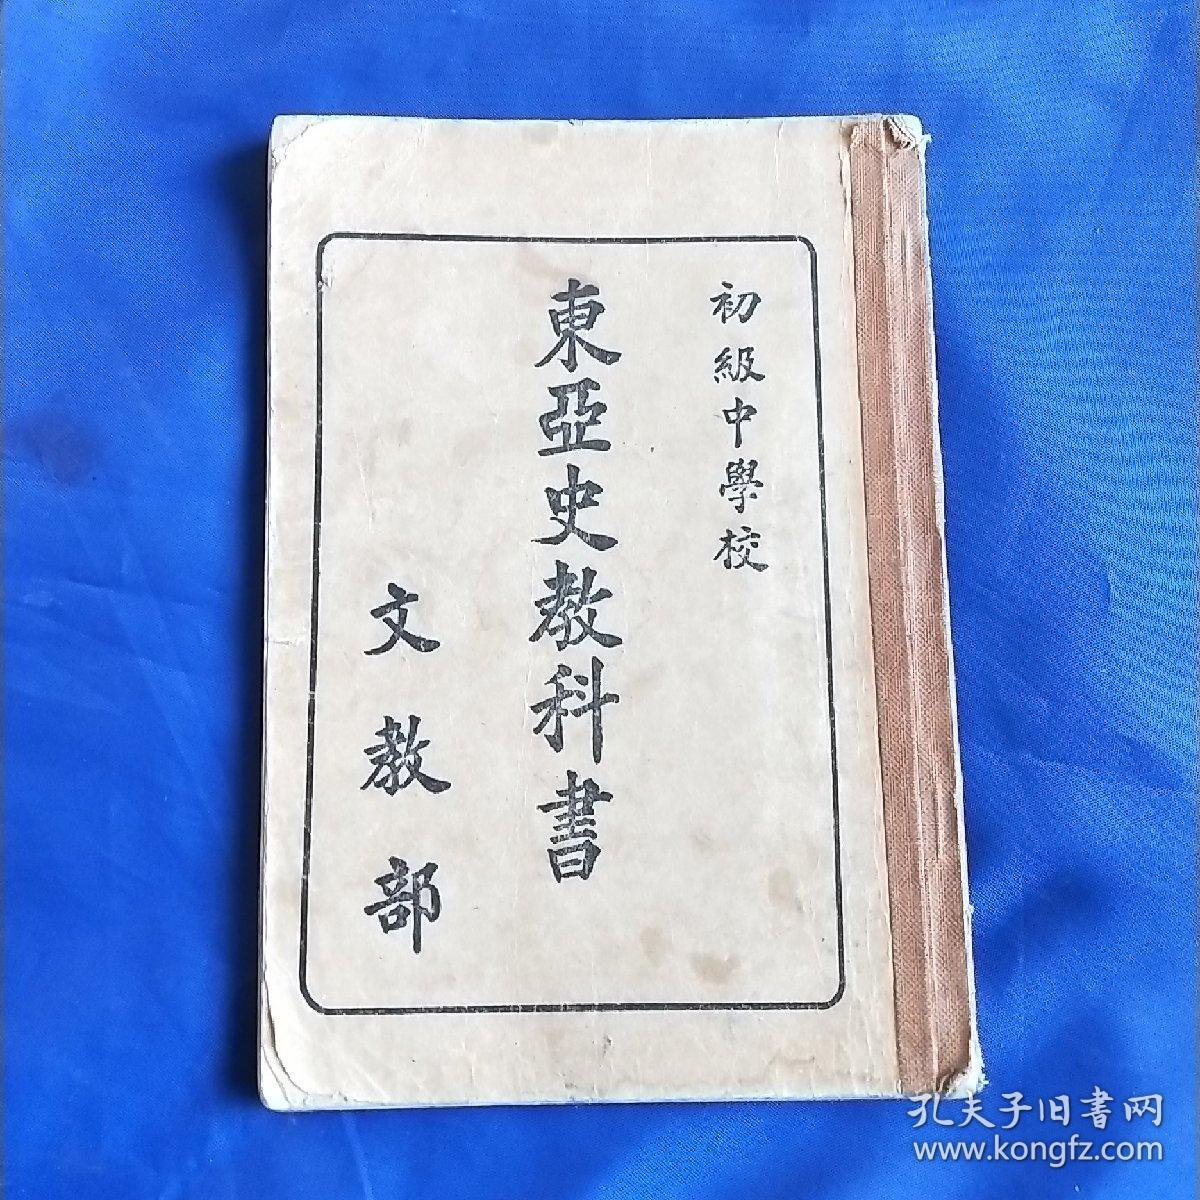 初級中學校
東亞史教科書
文教部
孔夫子旧書网
www.kongfz.com